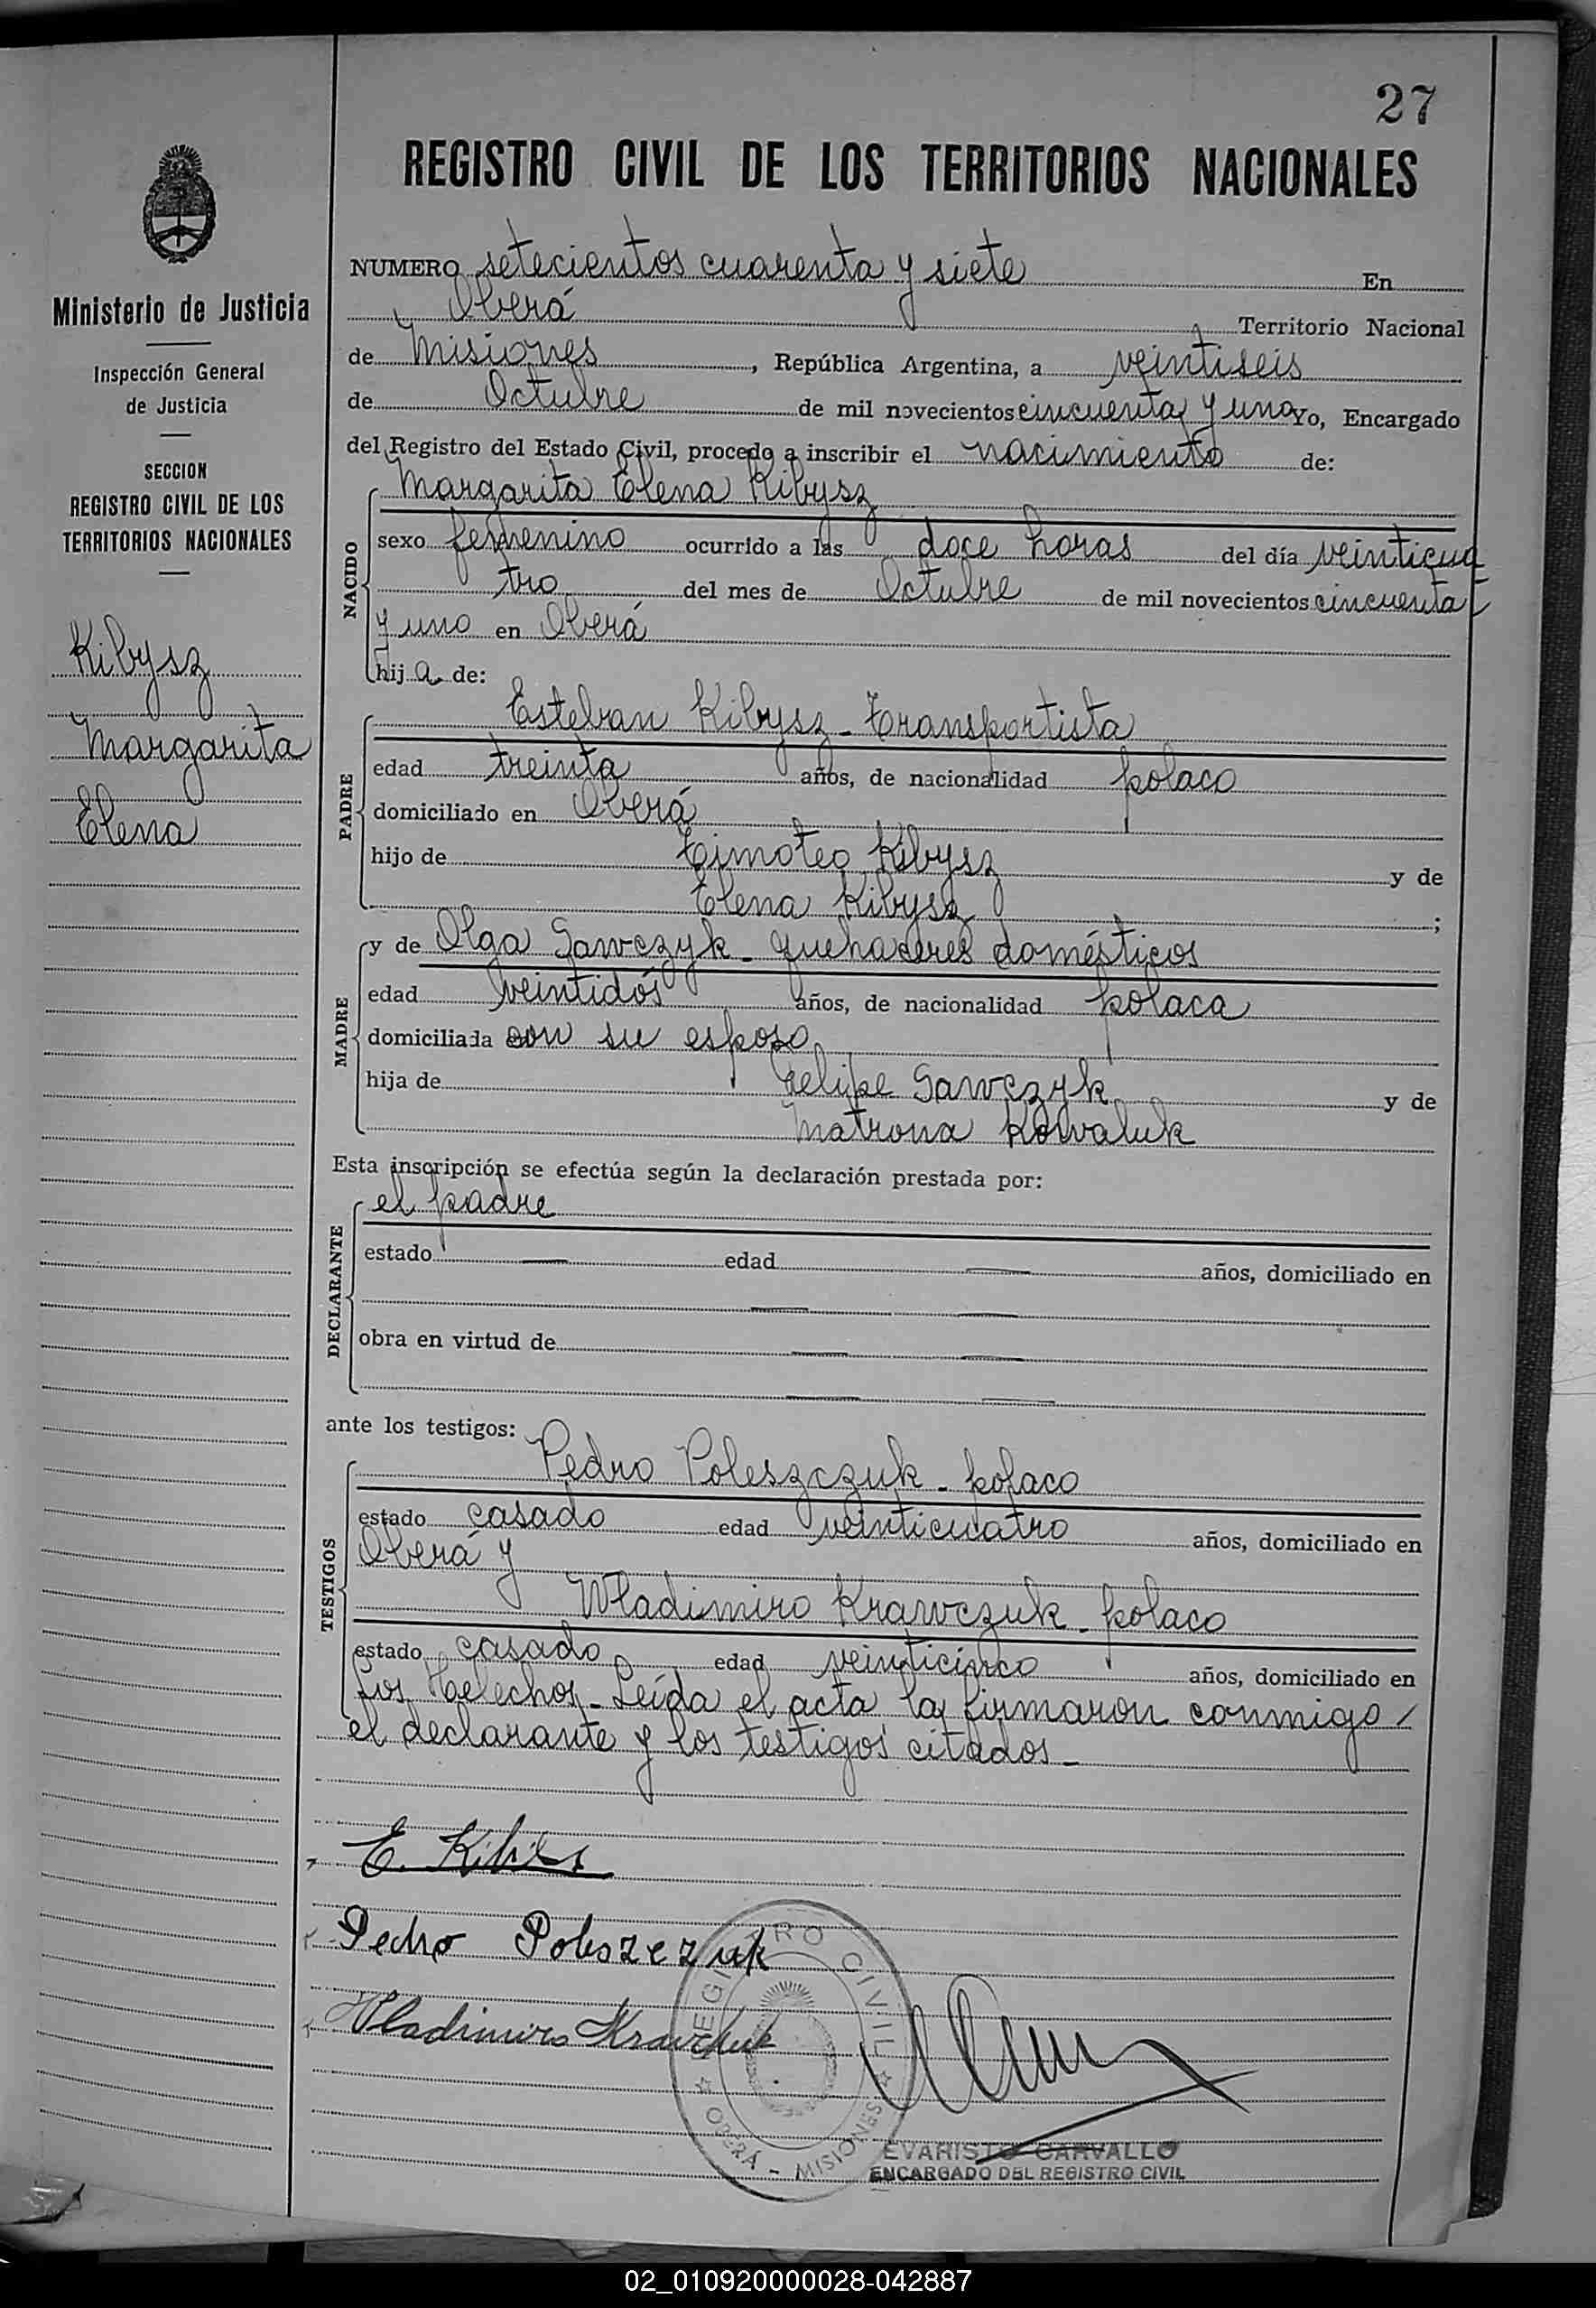 27
REGISTRO CIVIL DE LOS TERRITORIOS NACIONALES
Ministerio de Justicia
Inspección General
de Justicia
SECCION
REGISTRO CIVIL DE LOS
TERRITORIOS NACIONALES
Kibysz
Margarita
Elena
NUMERO setecientos cuarenta y siete En
Oberá Territorio Nacional
de Misiones, República Argentina, a veintiseis
de Octubre de mil novecientos cincuenta y uno Yo, Encargado
del Registro del Estado Civil, procedo a inscribir el nacimiento de:
NACIDO
Margarita Elena Kibysz
sexo femenino ocurrido a las doce horas del día veinticua
tro del mes de Octubre de mil novecientos cincuenta
y uno en Oberá
hij a de:
PADRE
Esteban Kibysz - Transportista
edad treinta años, de nacionalidad polaco
domiciliado en Oberá
hijo de Timoteo Kibysz y de
Elena Kibysz ;
MADRE
y de Olga Sawczyk - quehaceres domésticos
edad veintidós años, de nacionalidad polaca
domiciliada con su esposo
hija de Felipe Sawczyk y de
Matrona Kowaluk
Esta inscripción se efectúa según la declaración prestada por:
DECLARANTE
el padre
estado — edad — años, domiciliado en
— —
obra en virtud de — —
— —
ante los testigos:
TESTIGOS
Pedro Poleszczuk - polaco
estado casado edad veinticuatro años, domiciliado en
Oberá y
Wladimiro Krawczuk - polaco
estado casado edad veinticinco años, domiciliado en
Los Helechos - Leída el acta la firmaron conmigo /
el declarante y los testigos citados -
E. Kibiss
Pedro Poleszczuk
Wladimiro Krawchuk
REGISTRO CIVIL
OBERÁ - MISIONES
EVARISTO CARVALLO
ENCARGADO DEL REGISTRO CIVIL
02_010920000028-042887